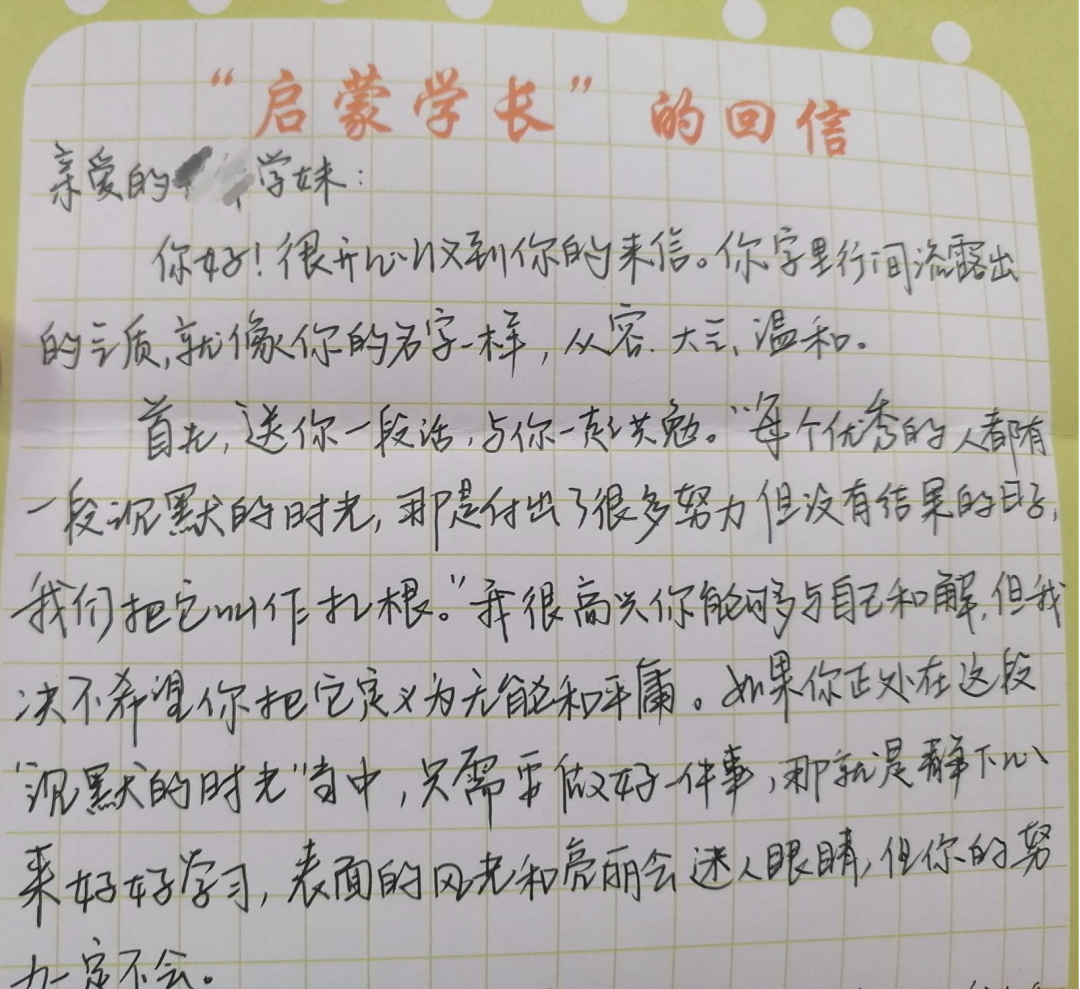 “启蒙学长”的回信
亲爱的 学妹：
你好！很开心收到你的来信。你字里行间流露出
的气质，就像你的名字一样，从容、大气、温和。
首先，送你一段话，与你一起共勉。“每个优秀的人都有
一段沉默的时光，那是付出了很多努力但没有结果的日子，
我们把它叫作扎根。”我很高兴你能够多与自己和解，但我
决不希望你把它定义为无能和平庸。如果你正处在这段
“沉默的时光”当中，只需要做好一件事，那就是静下心
来好好学习，表面的风光和亮丽会迷人眼睛，但你的努
力一定不会。